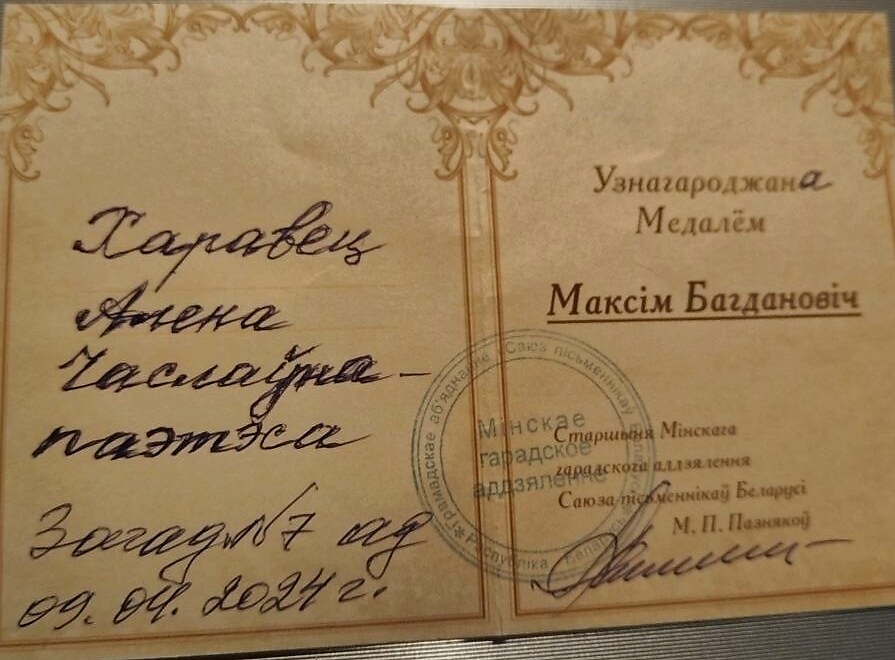 Харавец
Алена
Часлаўна –
паэтэса
Загад №7 ад
09.04.2024 г.
Узнагароджана
Медалём
Максім Багдановіч
Старшыня Мінскага
гарадскога аддзялення
Саюза пісьменнікаў Беларусі
М. П. Пазнякоў
Грамадскае аб'яднанне «Саюз пісьменнікаў Беларусі»
Рэспубліка Беларусь
Мінскае
гарадское
аддзяленне